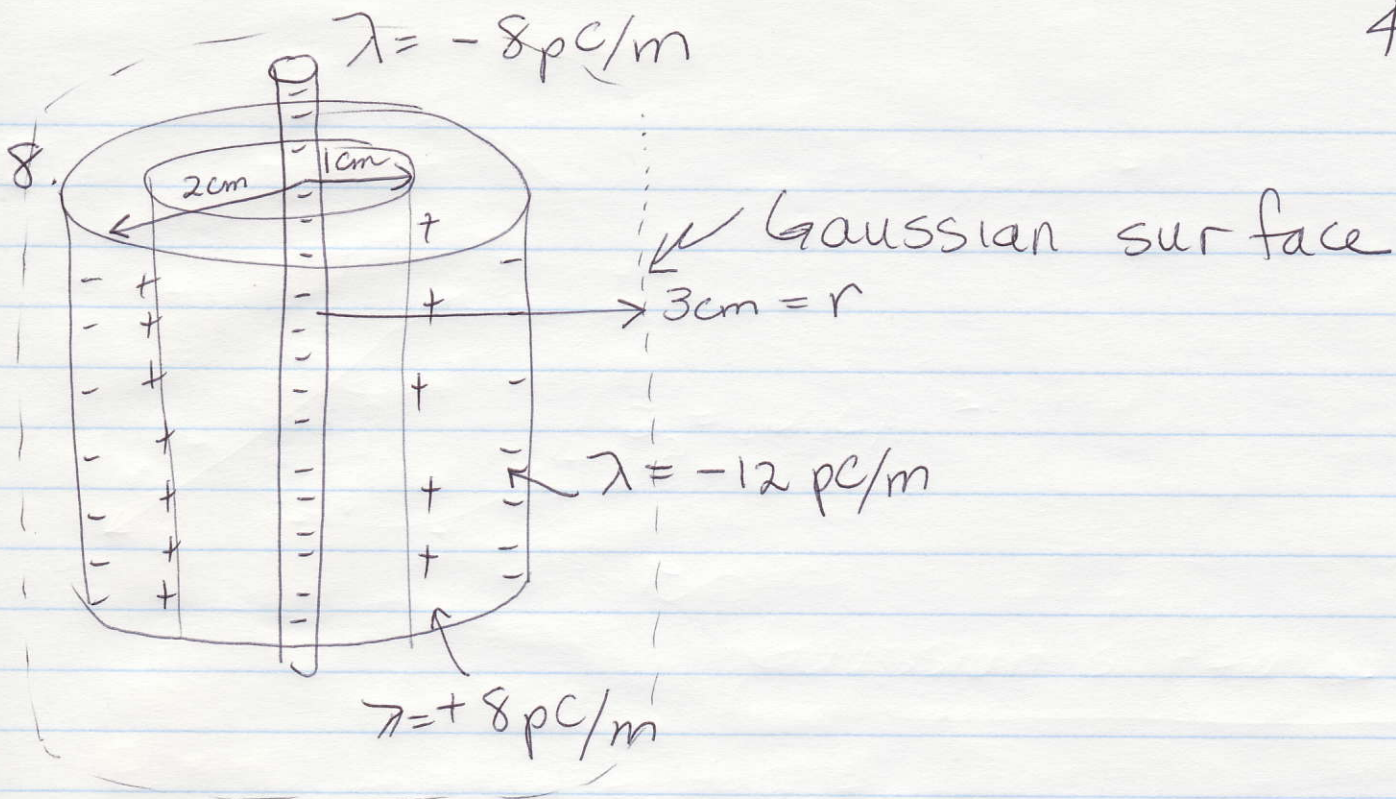 4
λ = -8pC/m
8.
2cm
1cm
Gaussian surface
3cm = r
λ = -12 pC/m
λ=+8pC/m